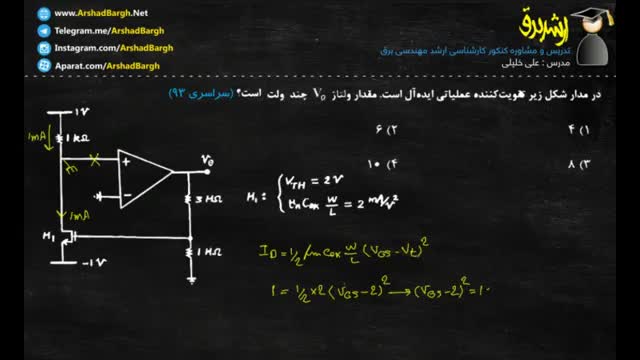 www.ArshadBargh.Net
Telegram.me/ArshadBargh
Instagram.com/ArshadBargh
Aparat.com/ArshadBargh
ارشد برق
تدریس و مشاوره کنکور کارشناسی ارشد مهندسی برق
مدرس : علی خلیلی
در مدار شکل زیر تقویت‌کننده عملیاتی ایده‌آل است. مقدار ولتاژ V₀ چند ولت است؟ (سراسری ۹۳)
۱) ۴
۲) ۶
۳) ۸
۴) ۱۰
1V
1mA
1kΩ
+
-
V₀
3MΩ
1mA
M₁
1MΩ
-1V
M₁: { V_TH = 2V
μn Cox W/L = 2 mA/V²
I_D = 1/2 μn Cox W/L (V_GS - V_t)²
1 = 1/2 × 2 (V_GS - 2)² → (V_GS - 2)² = 1